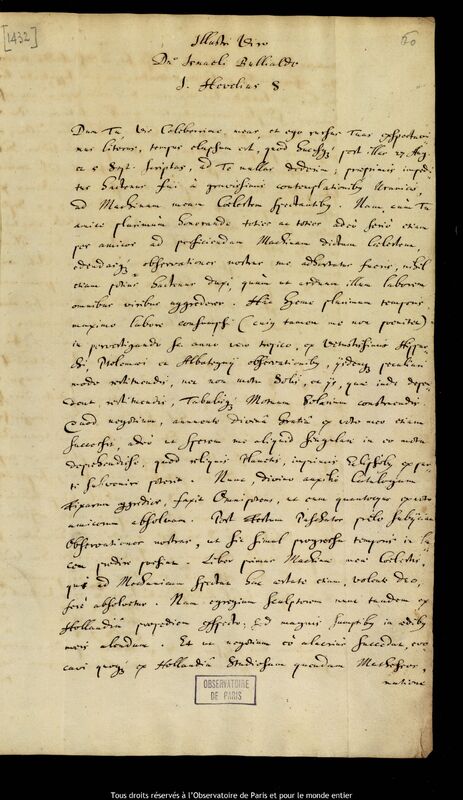 [1432]
Illustri Viro
Dno Ismaeli Bullialdo
J. Hevelius S
Dum Tu, Vir Celeberrime, meas, et ego rursus Tuas exspectavi
mus literas, tempus elapsum est, quod hucusq; post illas 27 Aug.
et 5 Sept. scriptas, ad Te nullas dederim; proprimis impedi
tus hactenus fui à gravissimis contemplationibus Uranicis,
ad Machinam meam Coelestem spectantibus. Nam, cùm Tu
amice plurimùm honorande toties ac toties adeò seriò etiam
per amicos ad perficiendam Machinam dictam Coelestem,
edendasq; observationes nostras me adhortatus fueris, nihil
etiam potius hactenus duxi, quàm ut arduum illum laborem
omnibus viribus aggrederer. Hac hyeme plurimum temporis
maximo labore consumpsi (cujus tamen me non poenitet)
in pervestigando sc. anno vero tropico, ex vetustissimis Hippar-
chi, Ptolemaei et Albategnij observationibus, ijsdemq; peculiari
modo restituendis, nec non motu Solis, et ijs, quae inde depen
dent restituendis, Tabulisq; Motuum Solarium construendis
Quod negotium, annuente divina Gratia ex voto meo etiam
successit, adeò ut sperem me aliquid singulare in eo motu
deprehendisse, quod reliquis Planetis, imprimis Eclipsibus ex par
te subvenire poterit. Nunc, divino auxilio Catalogum
Fixarum aggredior, faxit Omnipotens, ut eum quantocyus ex voto
amicorum absolvam. Post Festum Paschatos praelo subjiciam
Observationes nostras, ut sic simul progressu temporis in lu
cem prodire possint. Liber primus Machinae meae Coelestis,
qui ad Mechanicam spectat hac aestate etiam, volente Deo,
ferè absolvetur. Nam egregium sculptorem nunc tandem ex
Hollandiâ propediem exspecto; quem magnis sumptibus in aedibus
meis alendum. Et ut negotium eò alacrius succedat, evo
cavi quoq; ex Hollandiâ Studiosum quendam Matheseos,
OBSERVATOIRE
DE PARIS
Tous droits réservés à l'Observatoire de Paris et pour le monde entier